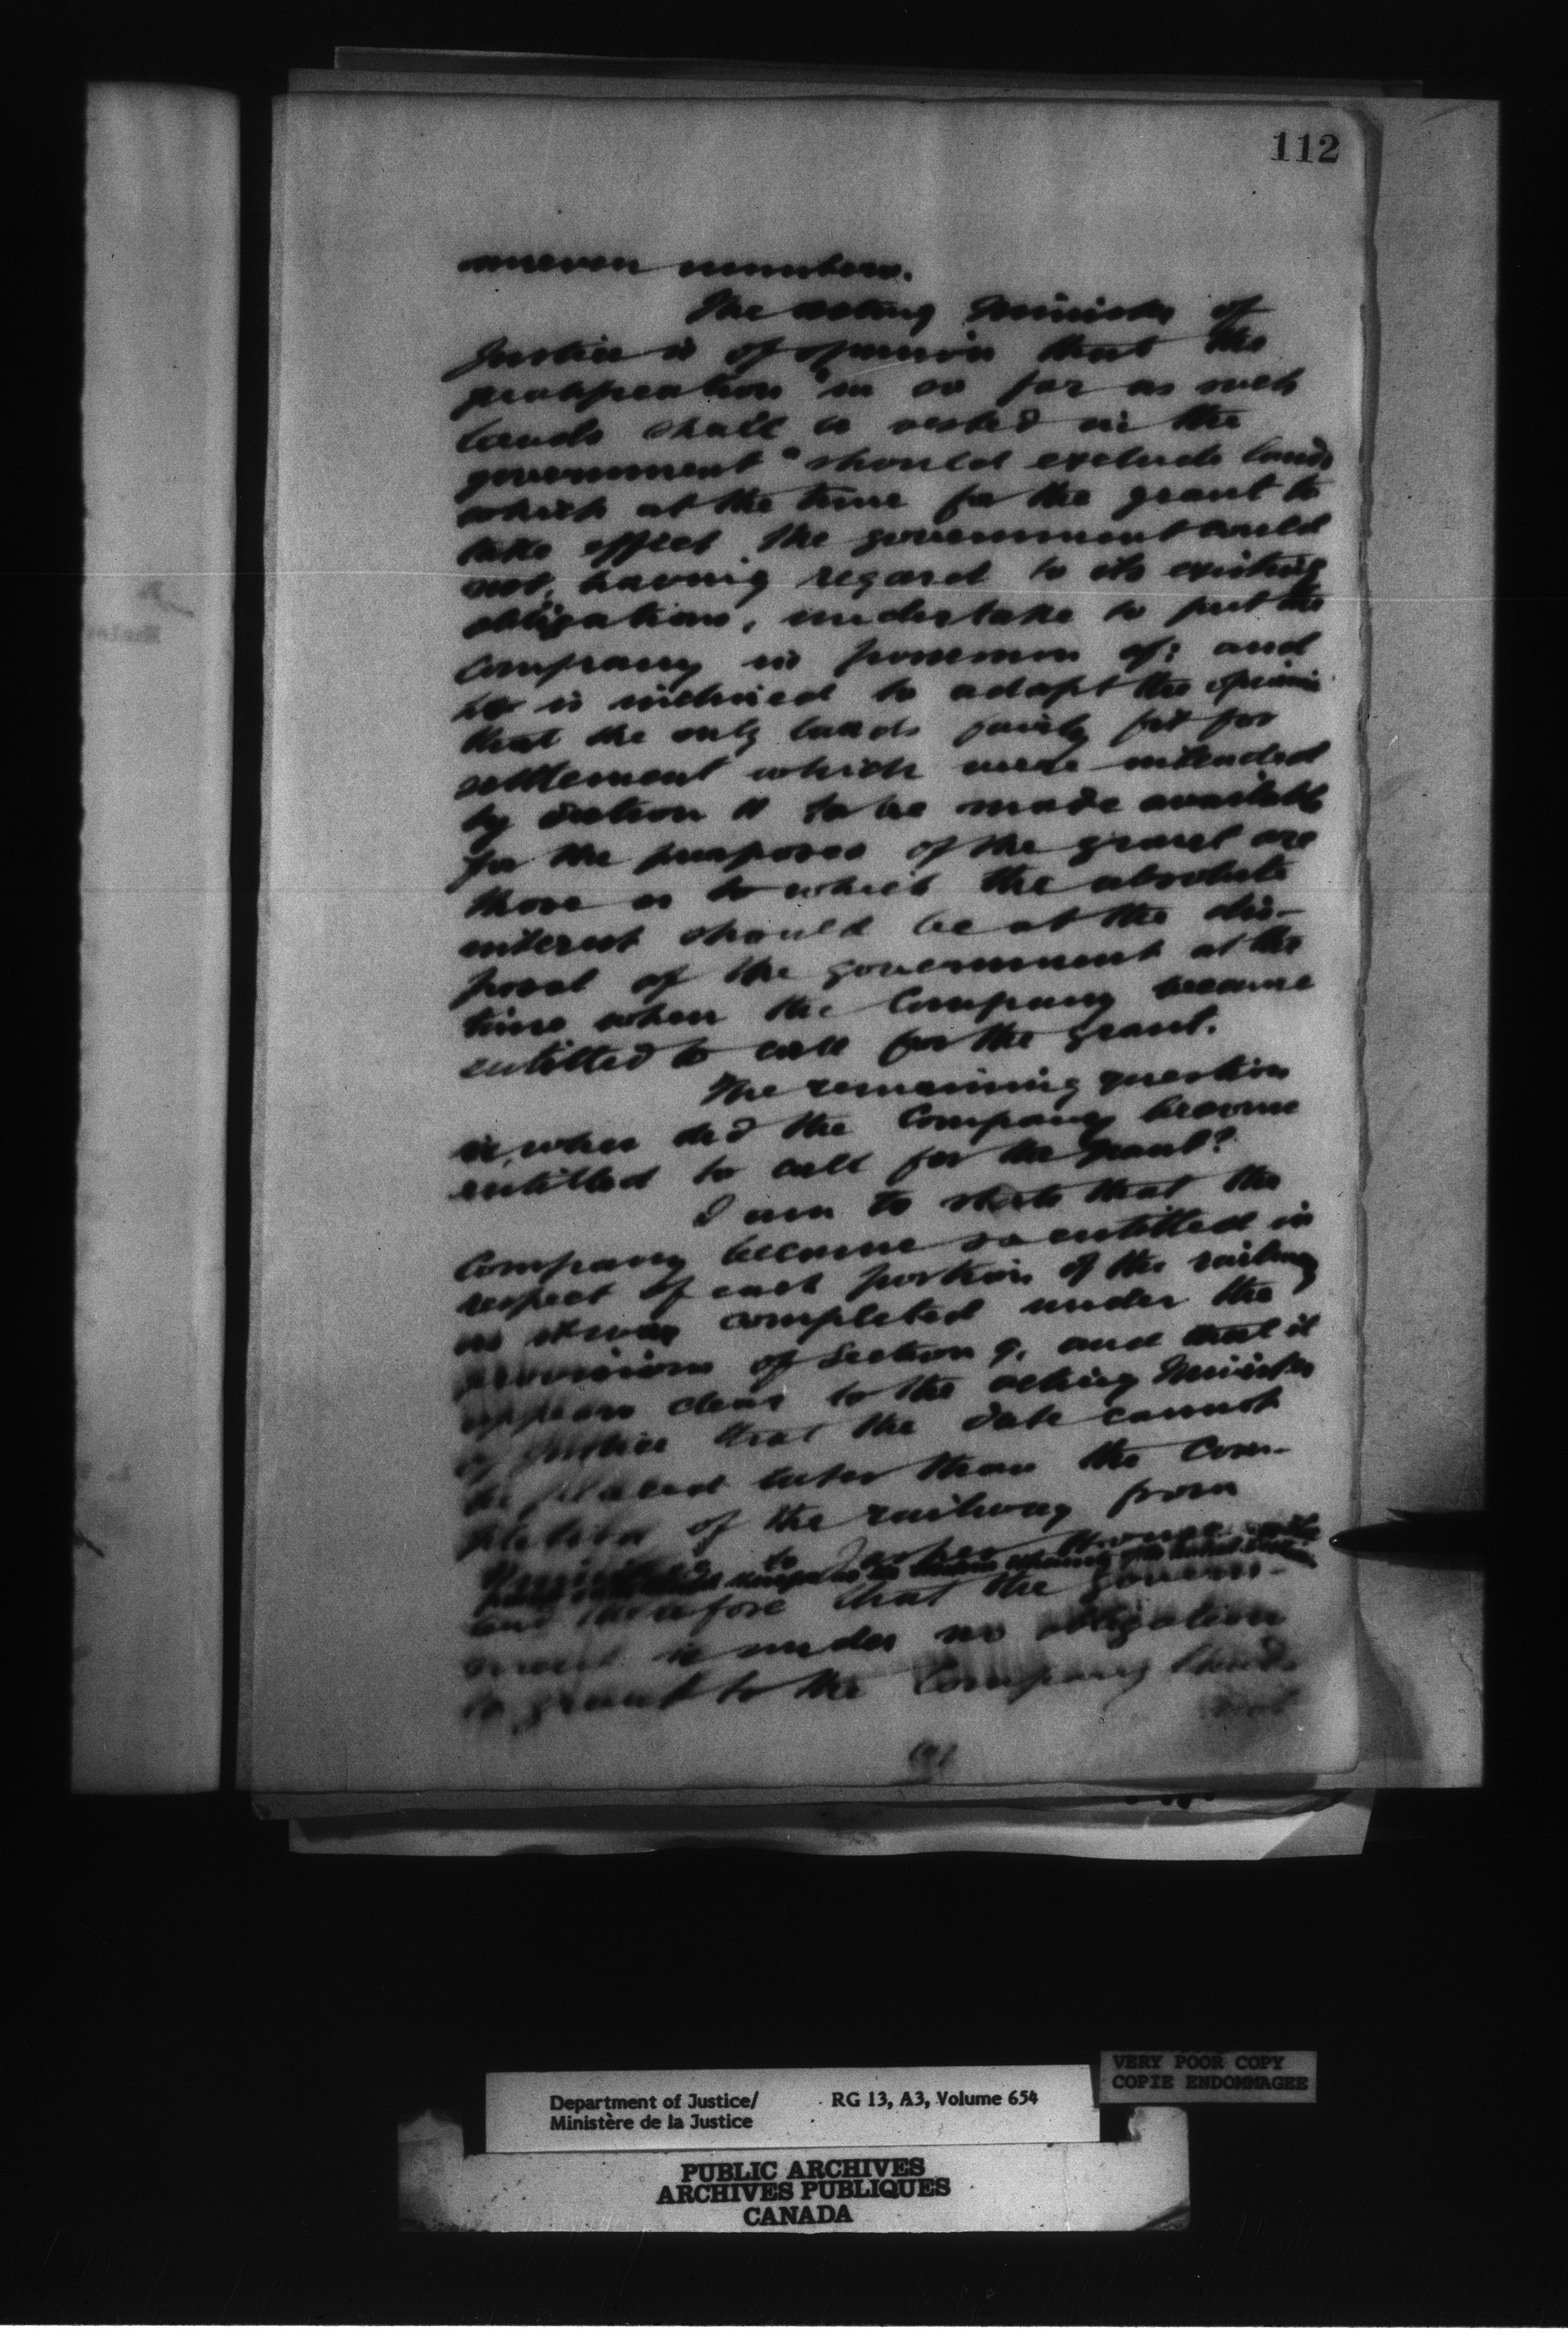 112
uneven numbers.
The acting Minister of
Justice is of opinion that the
qualification "in so far as such
lands shall be vested in the
government" should exclude lands
which at the time for the grant to
take effect the government could
not, having regard to its existing
obligations, undertake to put the
Company in possession of; and
he is inclined to adopt the opinion
that the only lands fairly fit for
settlement which were intended
by Section 11 to be made available
for the purposes of the grant are
those as to which the absolute
interest should be at the dis-
posal of the government at the
time when the Company became
entitled to call for the grant.
The remaining question
is, when did the Company become
entitled to call for the grant?
I am to state that the
Company became so entitled in
respect of each portion of the railway
as it was completed under the
provisions of Section 9, and that it
appears clear to the acting Minister
of Justice that the date cannot
be placed later than the com-
pletion of the railway from
to
and therefore that the govern-
ment is under no obligation
to grant to the Company lands
not
VERY POOR COPY
COPIE ENDOMMAGEE
Department of Justice/ RG 13, A3, Volume 654
Ministère de la Justice
PUBLIC ARCHIVES
ARCHIVES PUBLIQUES
CANADA